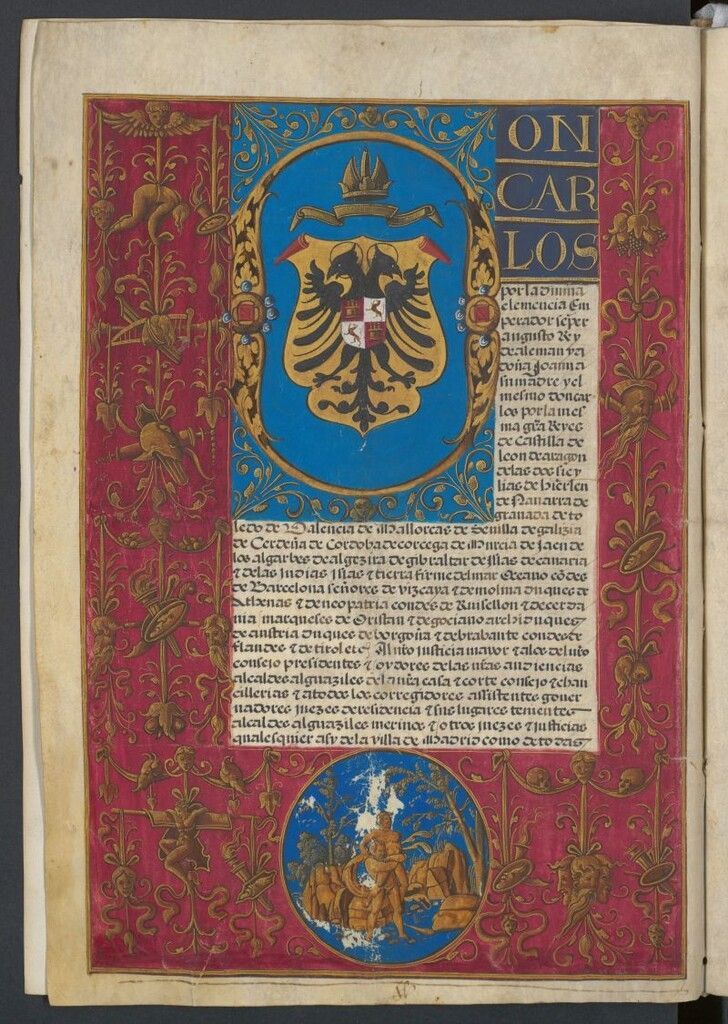 ON
CAR
LOS
por la diuina
clemencia Em
perador sẽper
augusto Rey
de aleman ya
doña Joanna
su madre y el
mesmo don car
los por la mes
ma gr̃a Reyes
de Castilla de
leon de aragon
de las dos sicy
lias de hierlen
de Nauarra de
granada de to
ledo de Valencia de Mallorcas de Seuilla de galizia
de Cerdeña de Cordoba de corcega de Murcia de Jaen de
los algarbes de algezira de gibraltar de yslas de canaria
& de las Indias Islas & tierra firme del mar Oceano cõdes
de Barcelona señores de vizcaya & de molina duques de
Athenas & de neo patria condes de Ruisellon & de cerda
nia marqueses de Oristan & de gociano archiduques
de austria duques de borgoña & de brabante condes de
flandes & de tirol etc̃ Al nr̃o justicia mayor & a los del nr̃o
consejo presidentes & oydores de las nr̃as audiencias
alcaldes alguaziles de la nr̃a casa & corte consejo & chan
cillerias & a todos los corregidores assistentes gouer
nadores juezes de residencia & sus lugares tenientes
alcaldes alguaziles merinos & otros juezes & justicias
quales quier asy de la villa de Madrid como de todas